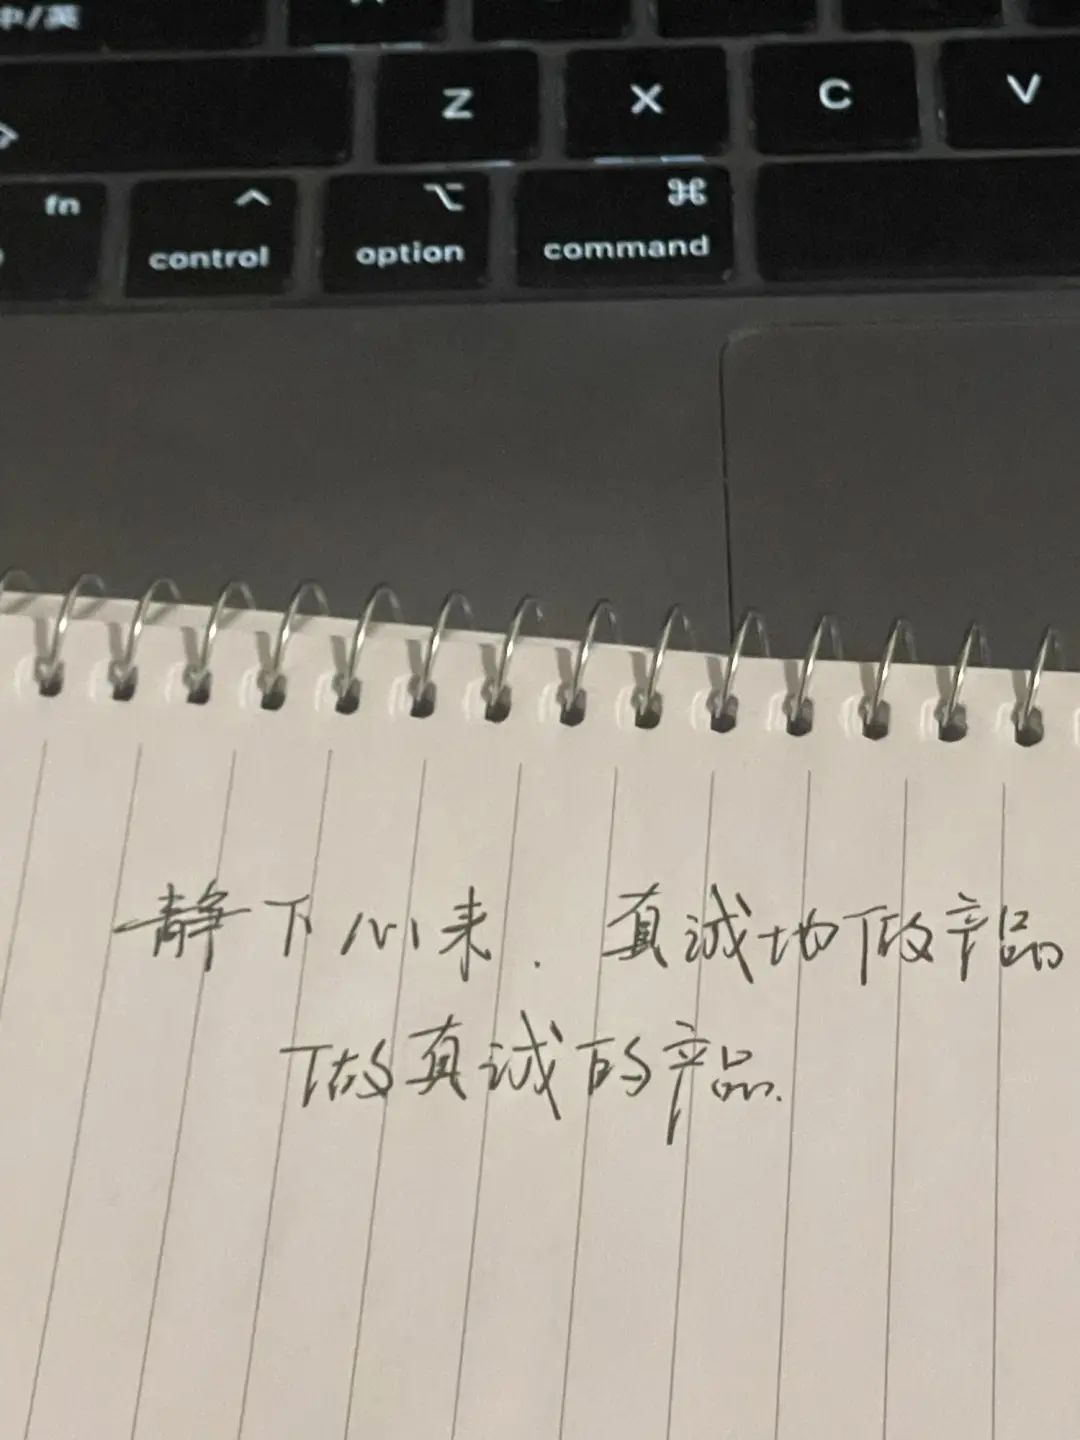 中/英
Z X C V
fn control option command
⌃ ⌥ ⌘
静下心来. 真诚地做产品
做真诚的产品.